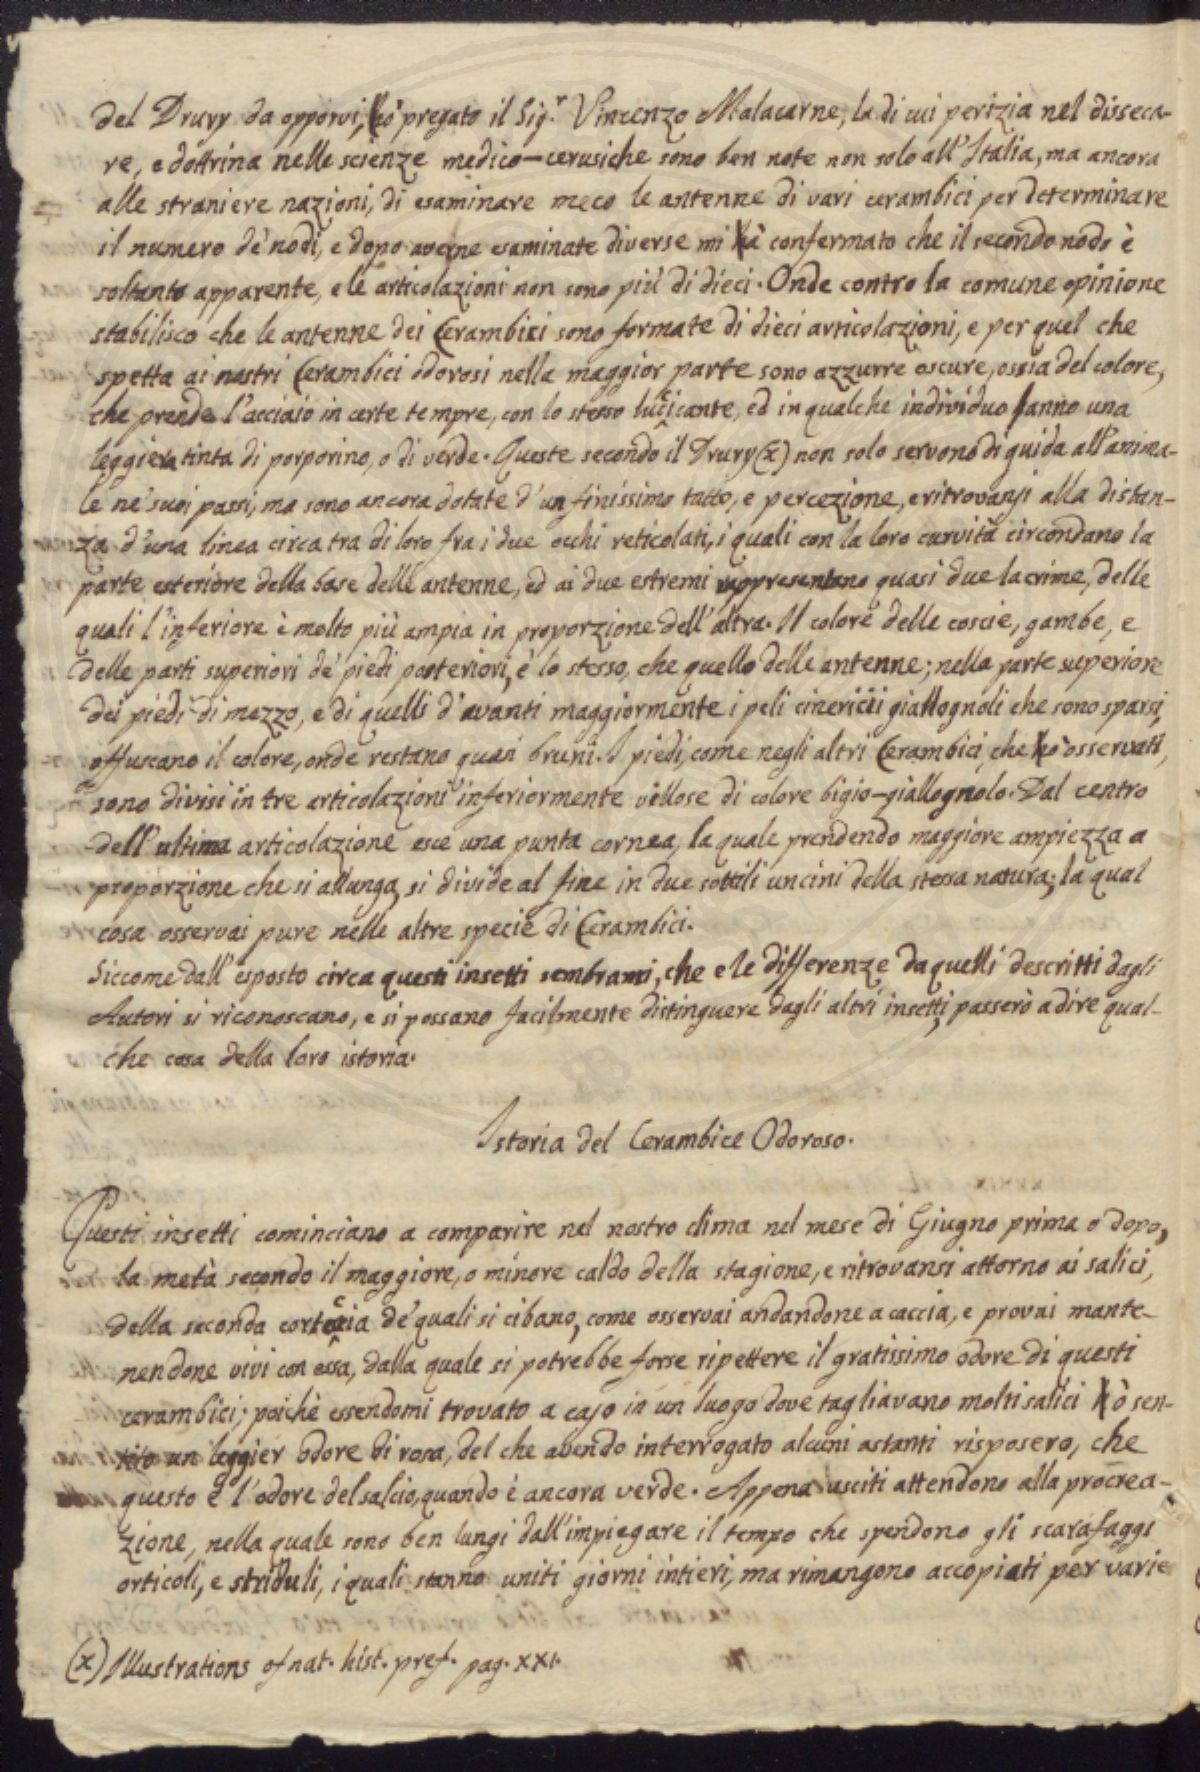 del Drury da opporvi, ò pregato il Sig.r Vincenzo Malacarne, la di cui perizia nel disseca-
re, e dottrina nelle scienze medico-cerusiche sono ben note non solo all'Italia, ma ancora
alle straniere nazioni, di esaminare meco le antenne di vari cerambici per determinare
il numero de' nodi, e dopo averne esaminate diverse mi à confermato che il secondo nodo è
soltanto apparente, e le articolazioni non sono più di dieci. Onde contro la comune opinione
stabilisco che le antenne dei Cerambici sono formate di dieci articolazioni, e per quel che
spetta ai nostri Cerambici odorosi nella maggior parte sono azzurre oscure, ossia del colore,
che prende l'acciaio in certe tempre, con lo stesso luccicante, ed in qualche individuo anno una
leggiera tinta di porporino, o di verde. Queste secondo il Drury (x) non solo servono di guida all'anima-
le ne' suoi passi, ma sono ancora dotate d'un finissimo tatto, e percezione, e ritrovansi alla distan-
za d'una linea circa tra di loro fra i due occhi reticolati, i quali con la loro curvità circondano la
parte esteriore della base delle antenne, ed ai due estremi rappresentano quasi due lacrime, delle
quali l'inferiore è molto più ampia in proporzione dell'altra. Il colore delle coscie, gambe, e
delle parti superiori de' piedi posteriori, è lo stesso, che quello delle antenne; nella parte superiore
dei piedi di mezzo, e di quelli d'avanti maggiormente i peli cinericci giallognoli che sono sparsi,
offuscano il colore, onde restano quasi bruni. I piedi, come negli altri Cerambici, che ò osservati,
sono divisi in tre articolazioni inferiormente vellose di colore bigio-giallognolo. Dal centro
dell'ultima articolazione esce una punta cornea, la quale prendendo maggiore ampiezza a
proporzione che si allunga, si divide al fine in due sottili uncini della stessa natura; la qual
cosa osservai pure nelle altre specie di Cerambici.
Siccome dall'esposto circa questi insetti sembrami, che e le differenze da quelli descritti dagli
Autori si riconoscano, e si possano facilmente distinguere dagli altri insetti, passerò a dire qual-
che cosa della loro istoria.
Istoria del Cerambice Odoroso.
Questi insetti cominciano a comparire nel nostro clima nel mese di Giugno prima o dopo,
la metà secondo il maggiore, o minore caldo della stagione, e ritrovansi attorno ai salici,
della seconda corteccia de' quali si cibano, come osservai andandone a caccia, e provai mante-
nendone vivi con essa, dalla quale si potrebbe forse ripettere il gratissimo odore di questi
cerambici; poichè essendomi trovato a caso in un luogo dove tagliavano molti salici ò sen-
tito un leggier odore di rosa, del che avendo interrogato alcuni astanti risposero, che
questo è l'odore del salcio, quando è ancora verde. Appena usciti attendono alla procrea-
zione, nella quale sono ben lungi dall'impiegare il tempo che spendono gli scarafaggi
orticoli, e striduli, i quali stanno uniti giorni intieri, ma rimangono accopiati per varie
(x) Illustrations of nat. hist. pref. pag. XXI.